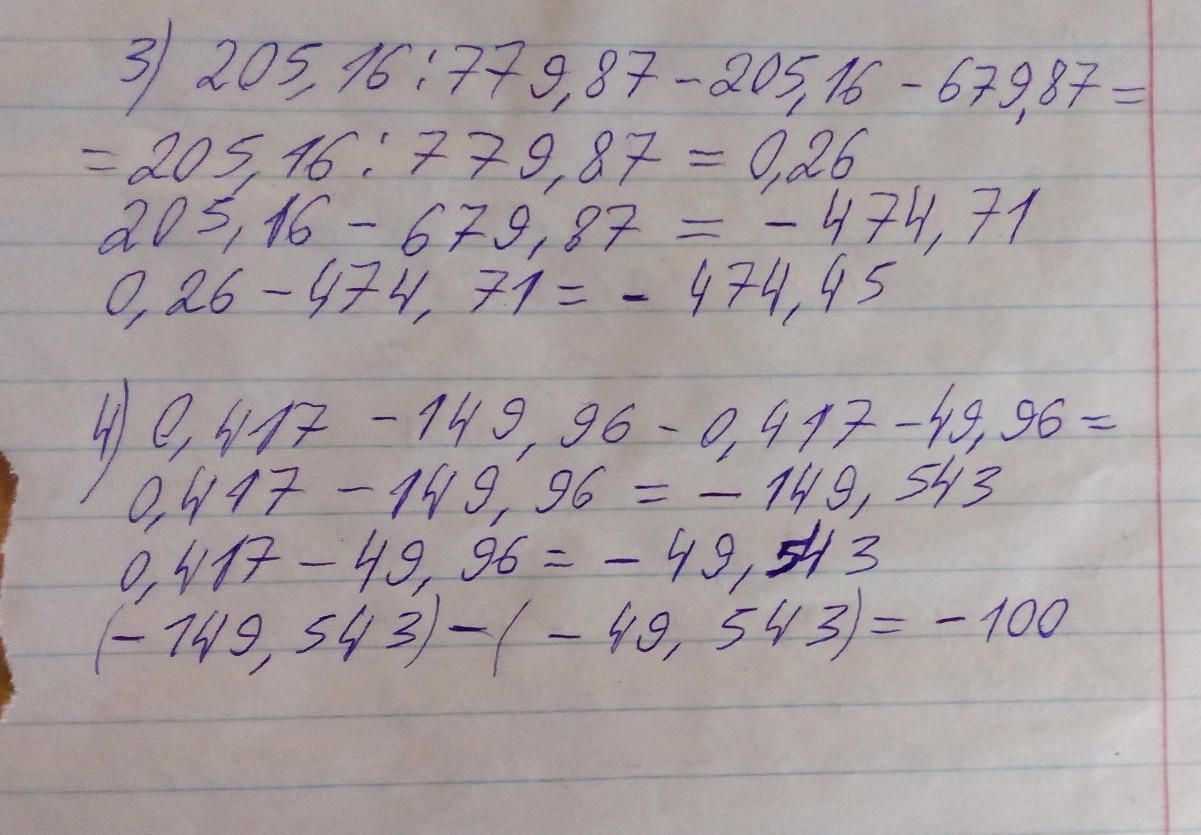 3) 205,16:779,87-205,16-679,87=
=205,16:779,87=0,26
205,16-679,87=-474,71
0,26-474,71=-474,45
4) 0,417-149,96-0,417-49,96=
0,417-149,96=-149,543
0,417-49,96=-49,543
(-149,543)-(-49,543)=-100